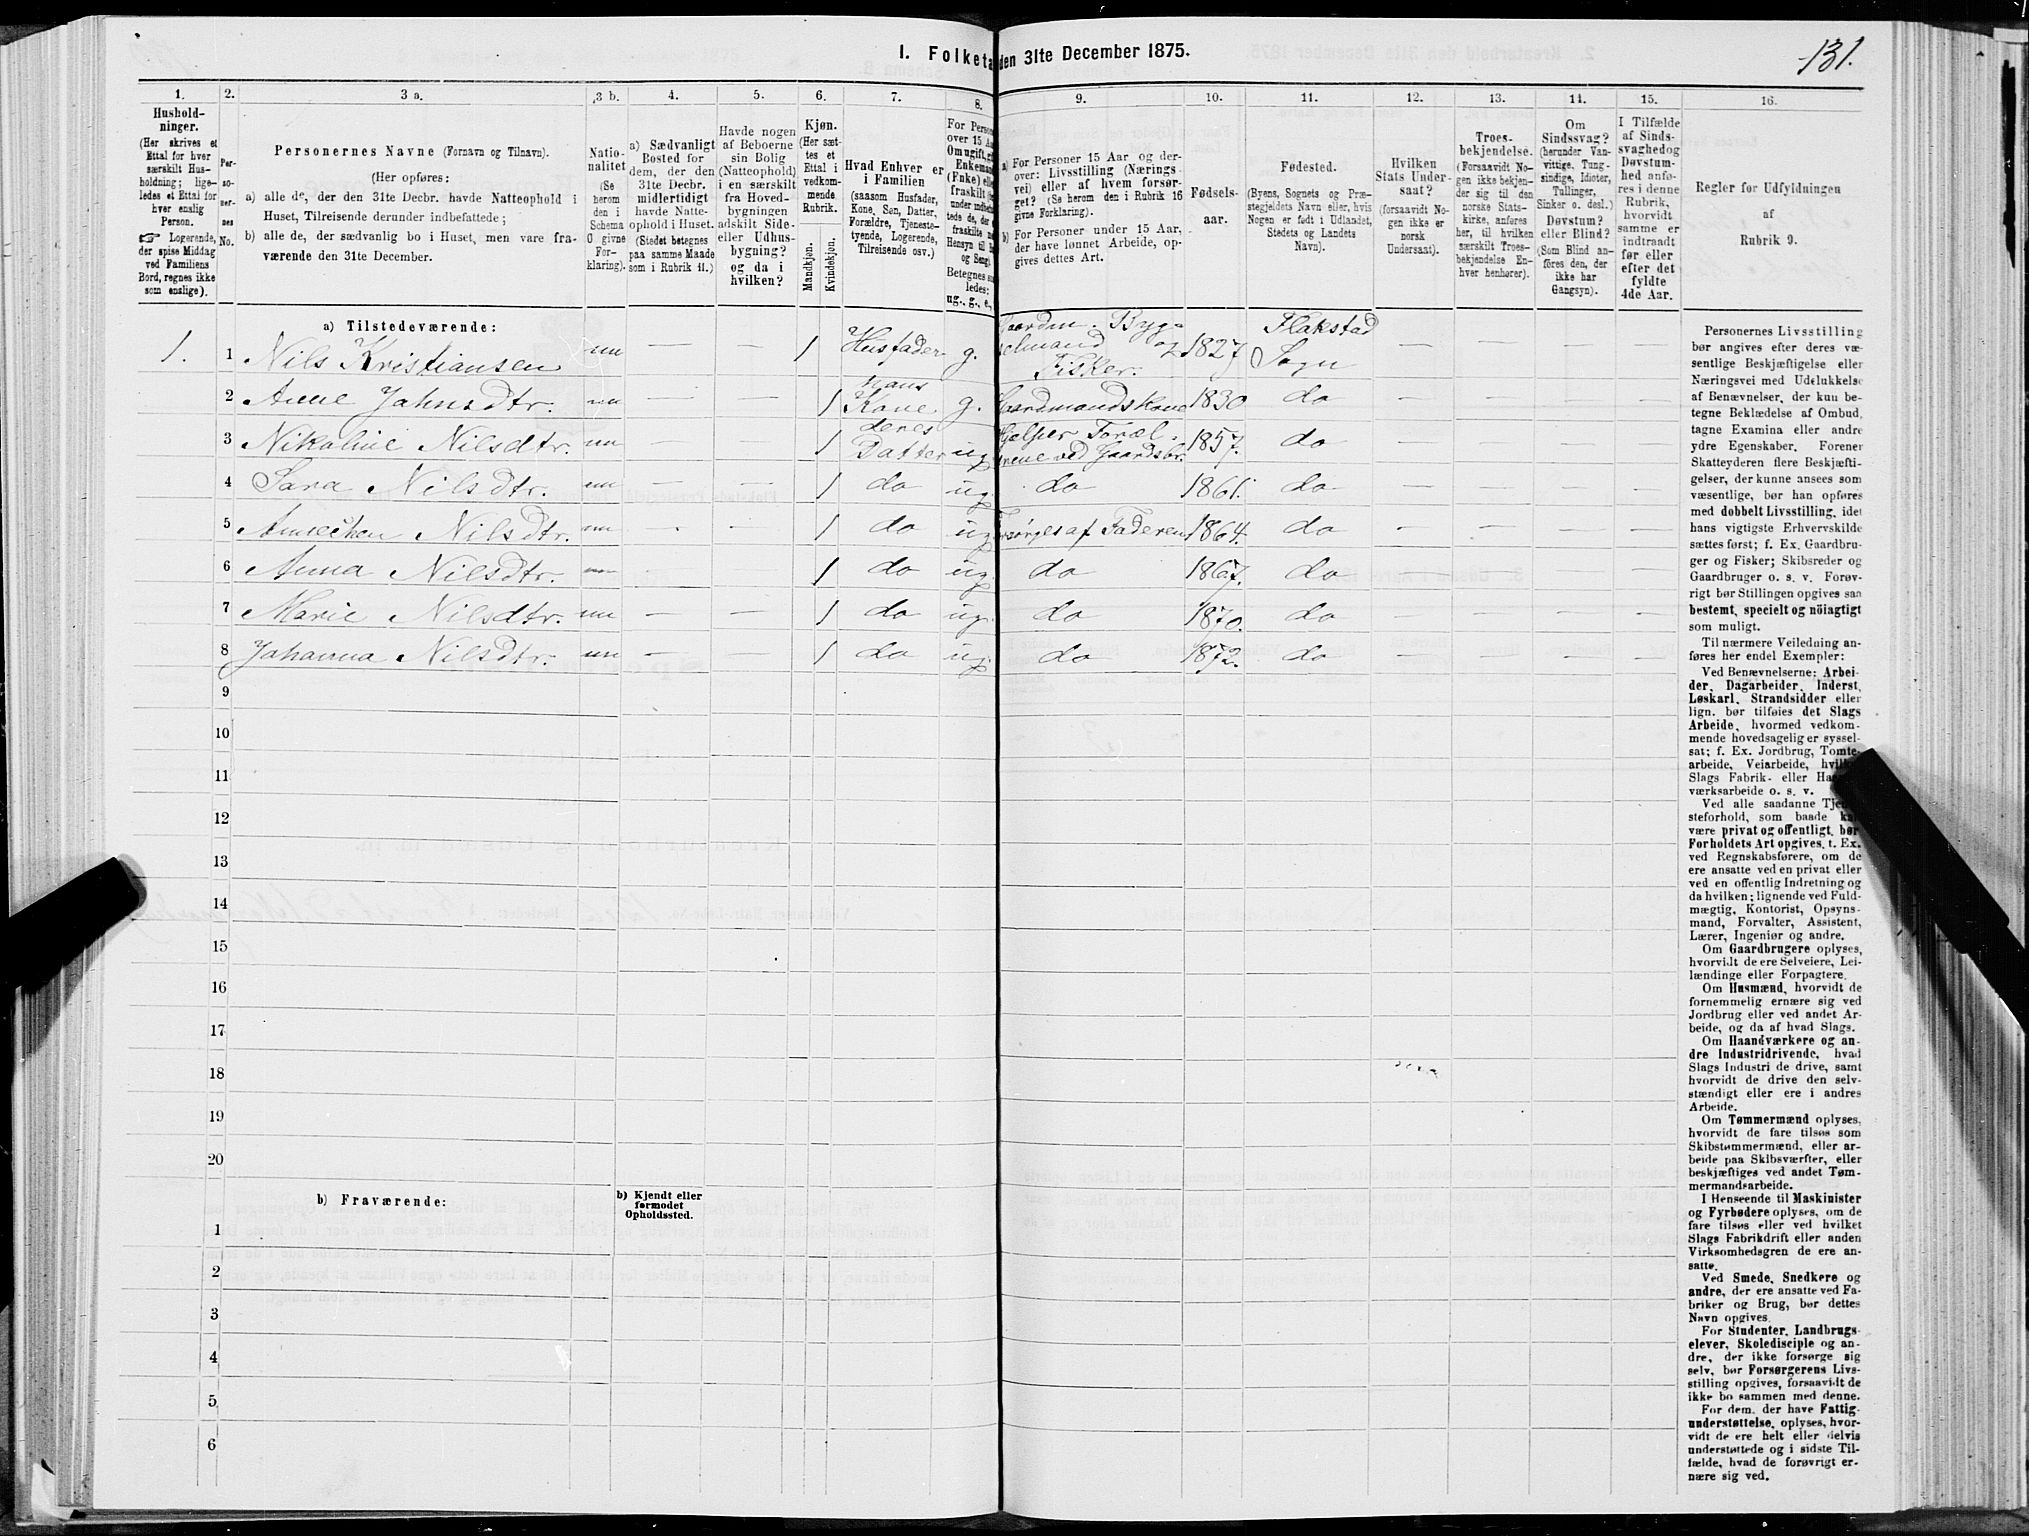 I. Folketa den 31te December 1875.
131.
1.
2.
3 a.
3 b.
4.
5.
6.
7.
8.
9.
10.
11.
12.
13.
14.
15.
16.
Hushold-
ninger.
(Her skrives et
Ettal for hver
særskilt Hus-
holdning; lige-
ledes et Ettal for
hver enslig
Person.
☞ Logerende,
der spise Middag
ved Familiens
Bord, regnes ikke
som enslige).
Per-
so-
ner-
nes
No.
Personernes Navne (Fornavn og Tilnavn).
(Her opføres:
a) alle de, der den 31te Decbr. havde Natteophold i
Huset, Tilreisende derunder indbefattede;
b) alle de, der sædvanlig bo i Huset, men vare fra-
værende den 31te December.
Natio-
nalitet
(Se
herom
den i
Schema
O givne
For-
klaring).
a) Sædvanligt
Bosted for
dem, der den
31te Decbr.
midlertidigt
havde Natte-
ophold i Huset.
(Stedet betegnes
paa samme Maade
som i Rubrik 11.)
Havde nogen
af Beboerne
sin Bolig
(Natteophold)
i en særskilt
fra Hoved-
bygningen
adskilt Side-
eller Udhus-
bygning?
og da i
hvilken?
Kjøn.
(Her sæt-
tes et
Ettal i
vedkom-
mende
Rubrik.
Mandkjøn.
Kvindekjøn.
Hvad Enhver er
i Familien
(saasom Husfader,
Kone, Søn, Datter,
Forældre, Tjeneste-
tyende, Logerende,
Tilreisende osv.)
For Person
over 15 Aa
Om ugift, gi
Enkeman
(Enke) elle
fraskilt
under indbe
tede de, der
fraskilte
Hensyn til B
og Seng.
Betegnes s
ledes:
ug., g., e.,
a) For Personer 15 Aar og der-
over: Livsstilling (Nærings-
vei) eller af hvem forsør-
get? (Se herom den i Rubrik 16
givne Forklaring).
b) For Personer under 15 Aar,
der have lønnet Arbeide, op-
gives dettes Art.
Fødsels-
aar.
Fødested.
(Byens, Sognets og Præ-
stegjeldets Navn eller, hvis
Nogen er født i Udlandet,
Stedets og Landets
Navn).
Hvilken
Stats Under-
saat?
(forsaavidt No-
gen ikke er
norsk
Undersaat).
Troes-
bekjendelse.
(Forsaavidt No-
gen ikke bekjen-
der sig til den
norske Stats-
kirke, anføres
her, til hvilken
særskilt Troes-
bekjendelse En-
hver henhører).
Om
Sindssvag?
(herunder Van-
vittige, Tung-
sindige, Idioter,
Tullinger,
Sinker o. desl.)
Døvstum?
eller Blind?
(Som Blind an-
føres den, der
ikke har
Gangsyn).
I Tilfælde
af Sinds-
svaghed og
Døvstum-
hed anfø-
res i denne
Rubrik,
hvorvidt
samme er
indtraadt
før eller
efter det
fyldte
4de Aar.
Regler for Udfyldningen
af
Rubrik 9.
a) Tilstedeværende:
1. 1 Nils Kristiansen nn — — 1 Husfader g. Gaardm. Byg-
selmand og
Fisker. 1827 Flakstad
Sogn — — — —
2 Anne Jahnsdtr. nn — — 1 hans
Kone g. Gaardmandskone 1830 do — — — —
3 Nikoline Nilsdtr. nn — — 1 deres
Datter ug. Hjelper Foræl-
drene ved Gaardsbr. 1857. do — — — —
4 Sara Nilsdtr. nn — — 1 do ug. do 1861. do — — — —
5 Annechen Nilsdtr. nn — — 1 do ug. Forsørges af Faderen 1864. do — — — —
6 Anna Nilsdtr. nn — — 1 do ug. do 1867. do — — — —
7 Marie Nilsdtr. nn — — 1 do ug. do 1870. do — — — —
8 Johanna Nilsdtr. nn — — 1 do ug. do 1872. do — — — —
9
10
11
12
13
14
15
16
17
18
19
20
b) Fraværende:
b) Kjendt eller
formodet
Opholdssted.
1
2
3
4
5
6
Personernes Livsstilling
bør angives efter deres væ-
sentlige Beskjæftigelse eller
Næringsvei med Udelukkelse
af Benævnelser, der kun be-
tegne Beklædelse af Ombud,
tagne Examina eller andre
ydre Egenskaber. Forener
Skatteyderen flere Beskjæfti-
gelser, der kunne ansees som
væsentlige, bør han opføres
med dobbelt Livsstilling, idet
hans vigtigste Erhvervskilde
sættes først; f. Ex. Gaardbru-
ger og Fisker; Skibsreder og
Gaardbruger o. s. v. Forøv-
rigt bør Stillingen opgives saa
bestemt, specielt og nöiagtigt
som muligt.
Til nærmere Veiledning an-
føres her endel Exempler:
Ved Benævnelserne: Arbei-
der, Dagarbeider, Inderst,
Løskarl, Strandsidder eller
lign. bør tilføies det Slags
Arbeide, hvormed vedkom-
mende hovedsagelig er syssel-
sat; f. Ex. Jordbrug, Tomte-
arbeide, Veiarbeide,
Slags Fabrik- eller
værksarbeide o. s. v.
Ved alle saadanne
steforhold, som baade
være privat og offentligt, bør
Forholdets Art opgives, t. Ex.
ved Regnskabsførere, om de
ere ansatte ved en privat eller
ved en offentlig Indretning og
da hvilken; lignende ved Fuld-
mægtig, Kontorist, Opsyns-
mand, Forvalter, Assistent,
Lærer, Ingeniør og andre.
Om Gaardbrugere oplyses,
hvorvidt de ere Selveiere, Lei-
lændinge eller Forpagtere.
Om Husmænd, hvorvidt de
fornemmelig ernære sig ved
Jordbrug eller ved andet Ar-
beide, og da af hvad Slags.
Om Haandværkere og an-
dre Industridrivende, hvad
Slags Industri de drive, samt
hvorvidt de drive den selv-
stændigt eller ere i andres
Arbeide.
Om Tømmermænd oplyses,
hvorvidt de fare tilsøs som
Skibstømmermænd, eller ar-
beide paa Skibsværfter, eller
beskjæftiges ved andet Tøm-
mermandsarbeide.
I Henseende til Maskinister
og Fyrbødere oplyses, om de
fare tilsøs eller ved hvilket
Slags Fabrikdrift eller anden
Virksomhedsgren de ere an-
satte.
Ved Smede, Snedkere og
andre, der ere ansatte ved Fa-
briker og Brug, bør dettes
Navn opgives.
For Studenter, Landbrugs-
elever, Skoledisciple og an-
dre, der ikke forsørge sig
selv, bør Forsørgerens Livs-
stilling opgives, forsaavidt de
ikke bo sammen med denne.
For dem, der have Fattig-
understøttelse, oplyses, hvor-
vidt de ere helt eller delvis
understøttede og i sidste Til-
fælde, hvad de forøvrigt er-
nære sig ved.